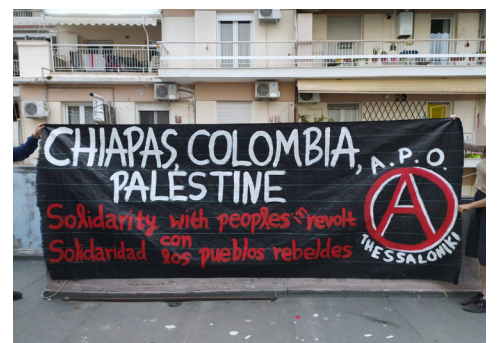 CHIAPAS, COLOMBIA,
PALESTINE
Solidarity with peoples in revolt
Solidaridad con los pueblos rebeldes
A.P.O.
A
THESSALONIKI